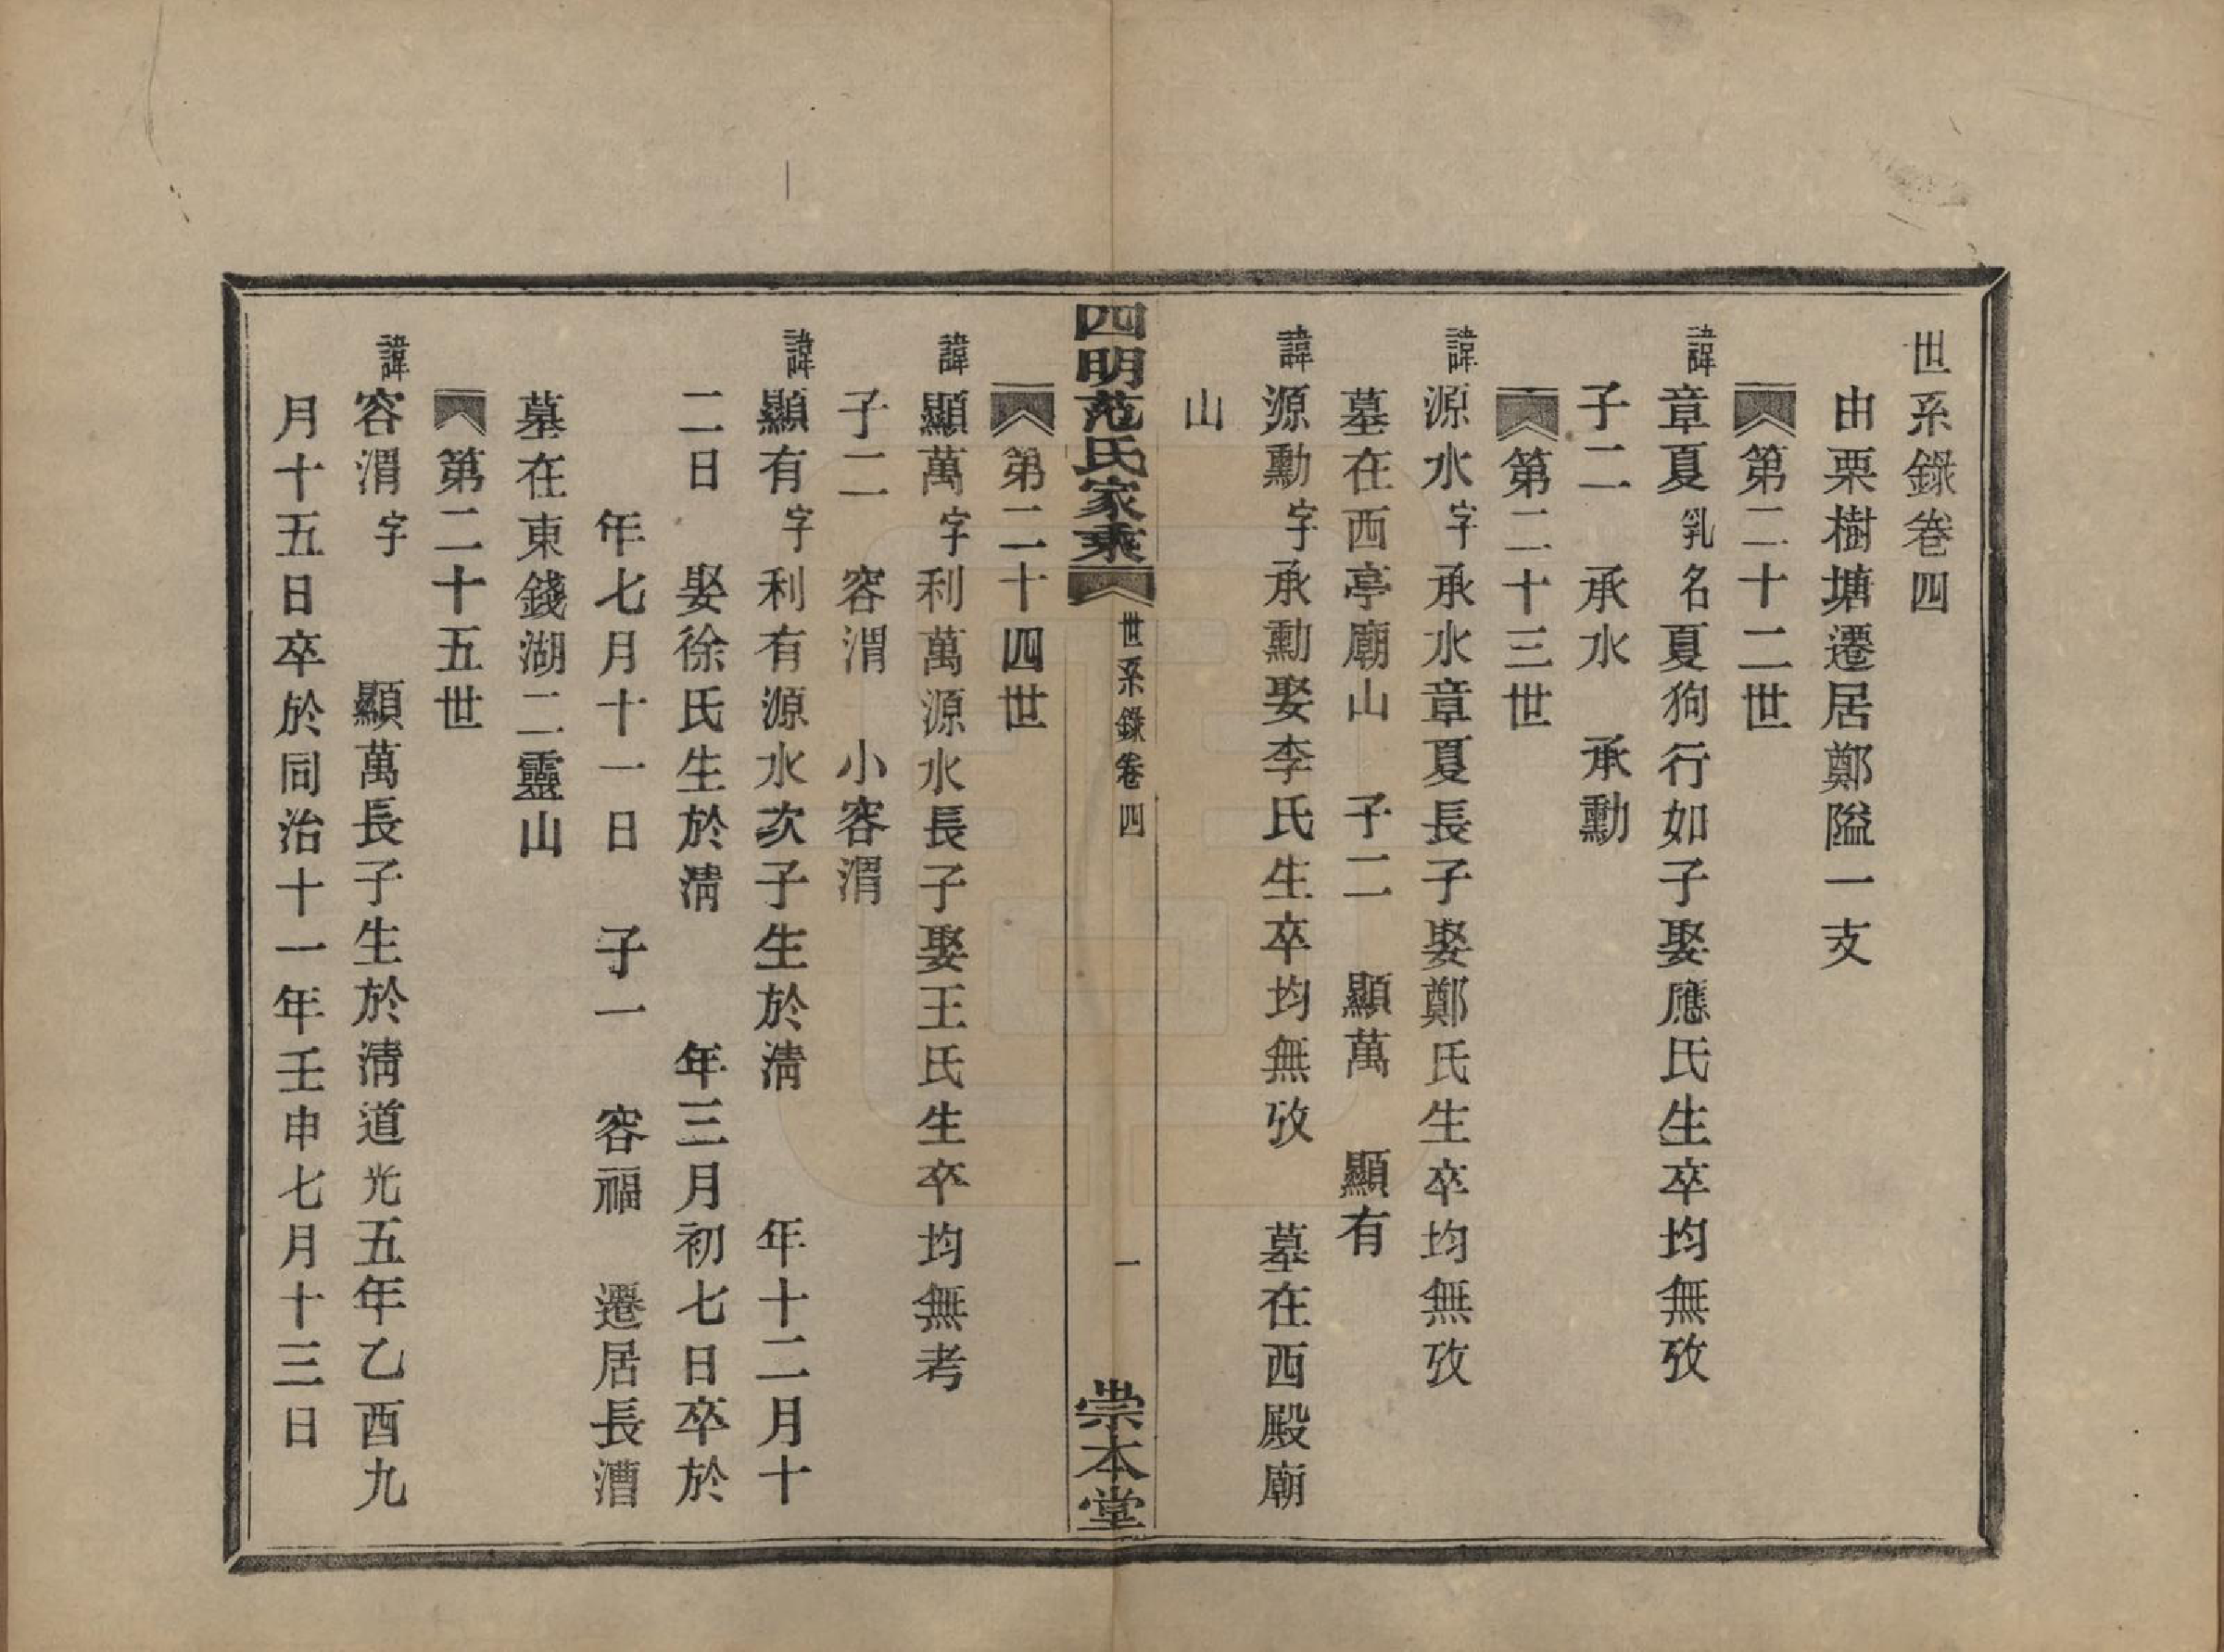 世系錄卷四
由栗樹塘遷居鄭隘一支
第二十二世
諱章夏乳名夏夏狗行如子娶應氏生卒均無攷
子二　承水　承勳
第二十三世
諱源水字承水章夏長子娶鄭氏生卒均無攷
墓在西亭廟山　子二　顯萬　顯有
諱源勳字承勳娶李氏生卒均無攷　墓在西殿廟
山
四明范氏家乘　世系錄卷四　一　崇本堂
第二十四世
諱顯萬字利萬源水長子娶王氏生卒均無考
子二　容渭　小容渭
諱顯有字利有源水次子生於清　年十二月十
二日　娶徐氏生於清　年三月初七日卒於
年七月十一日　子一　容福　遷居長漕
墓在東錢湖二靈山
第二十五世
諱容渭字　顯萬長子生於清道光五年乙酉九
月十五日卒於同治十一年壬申七月十三日